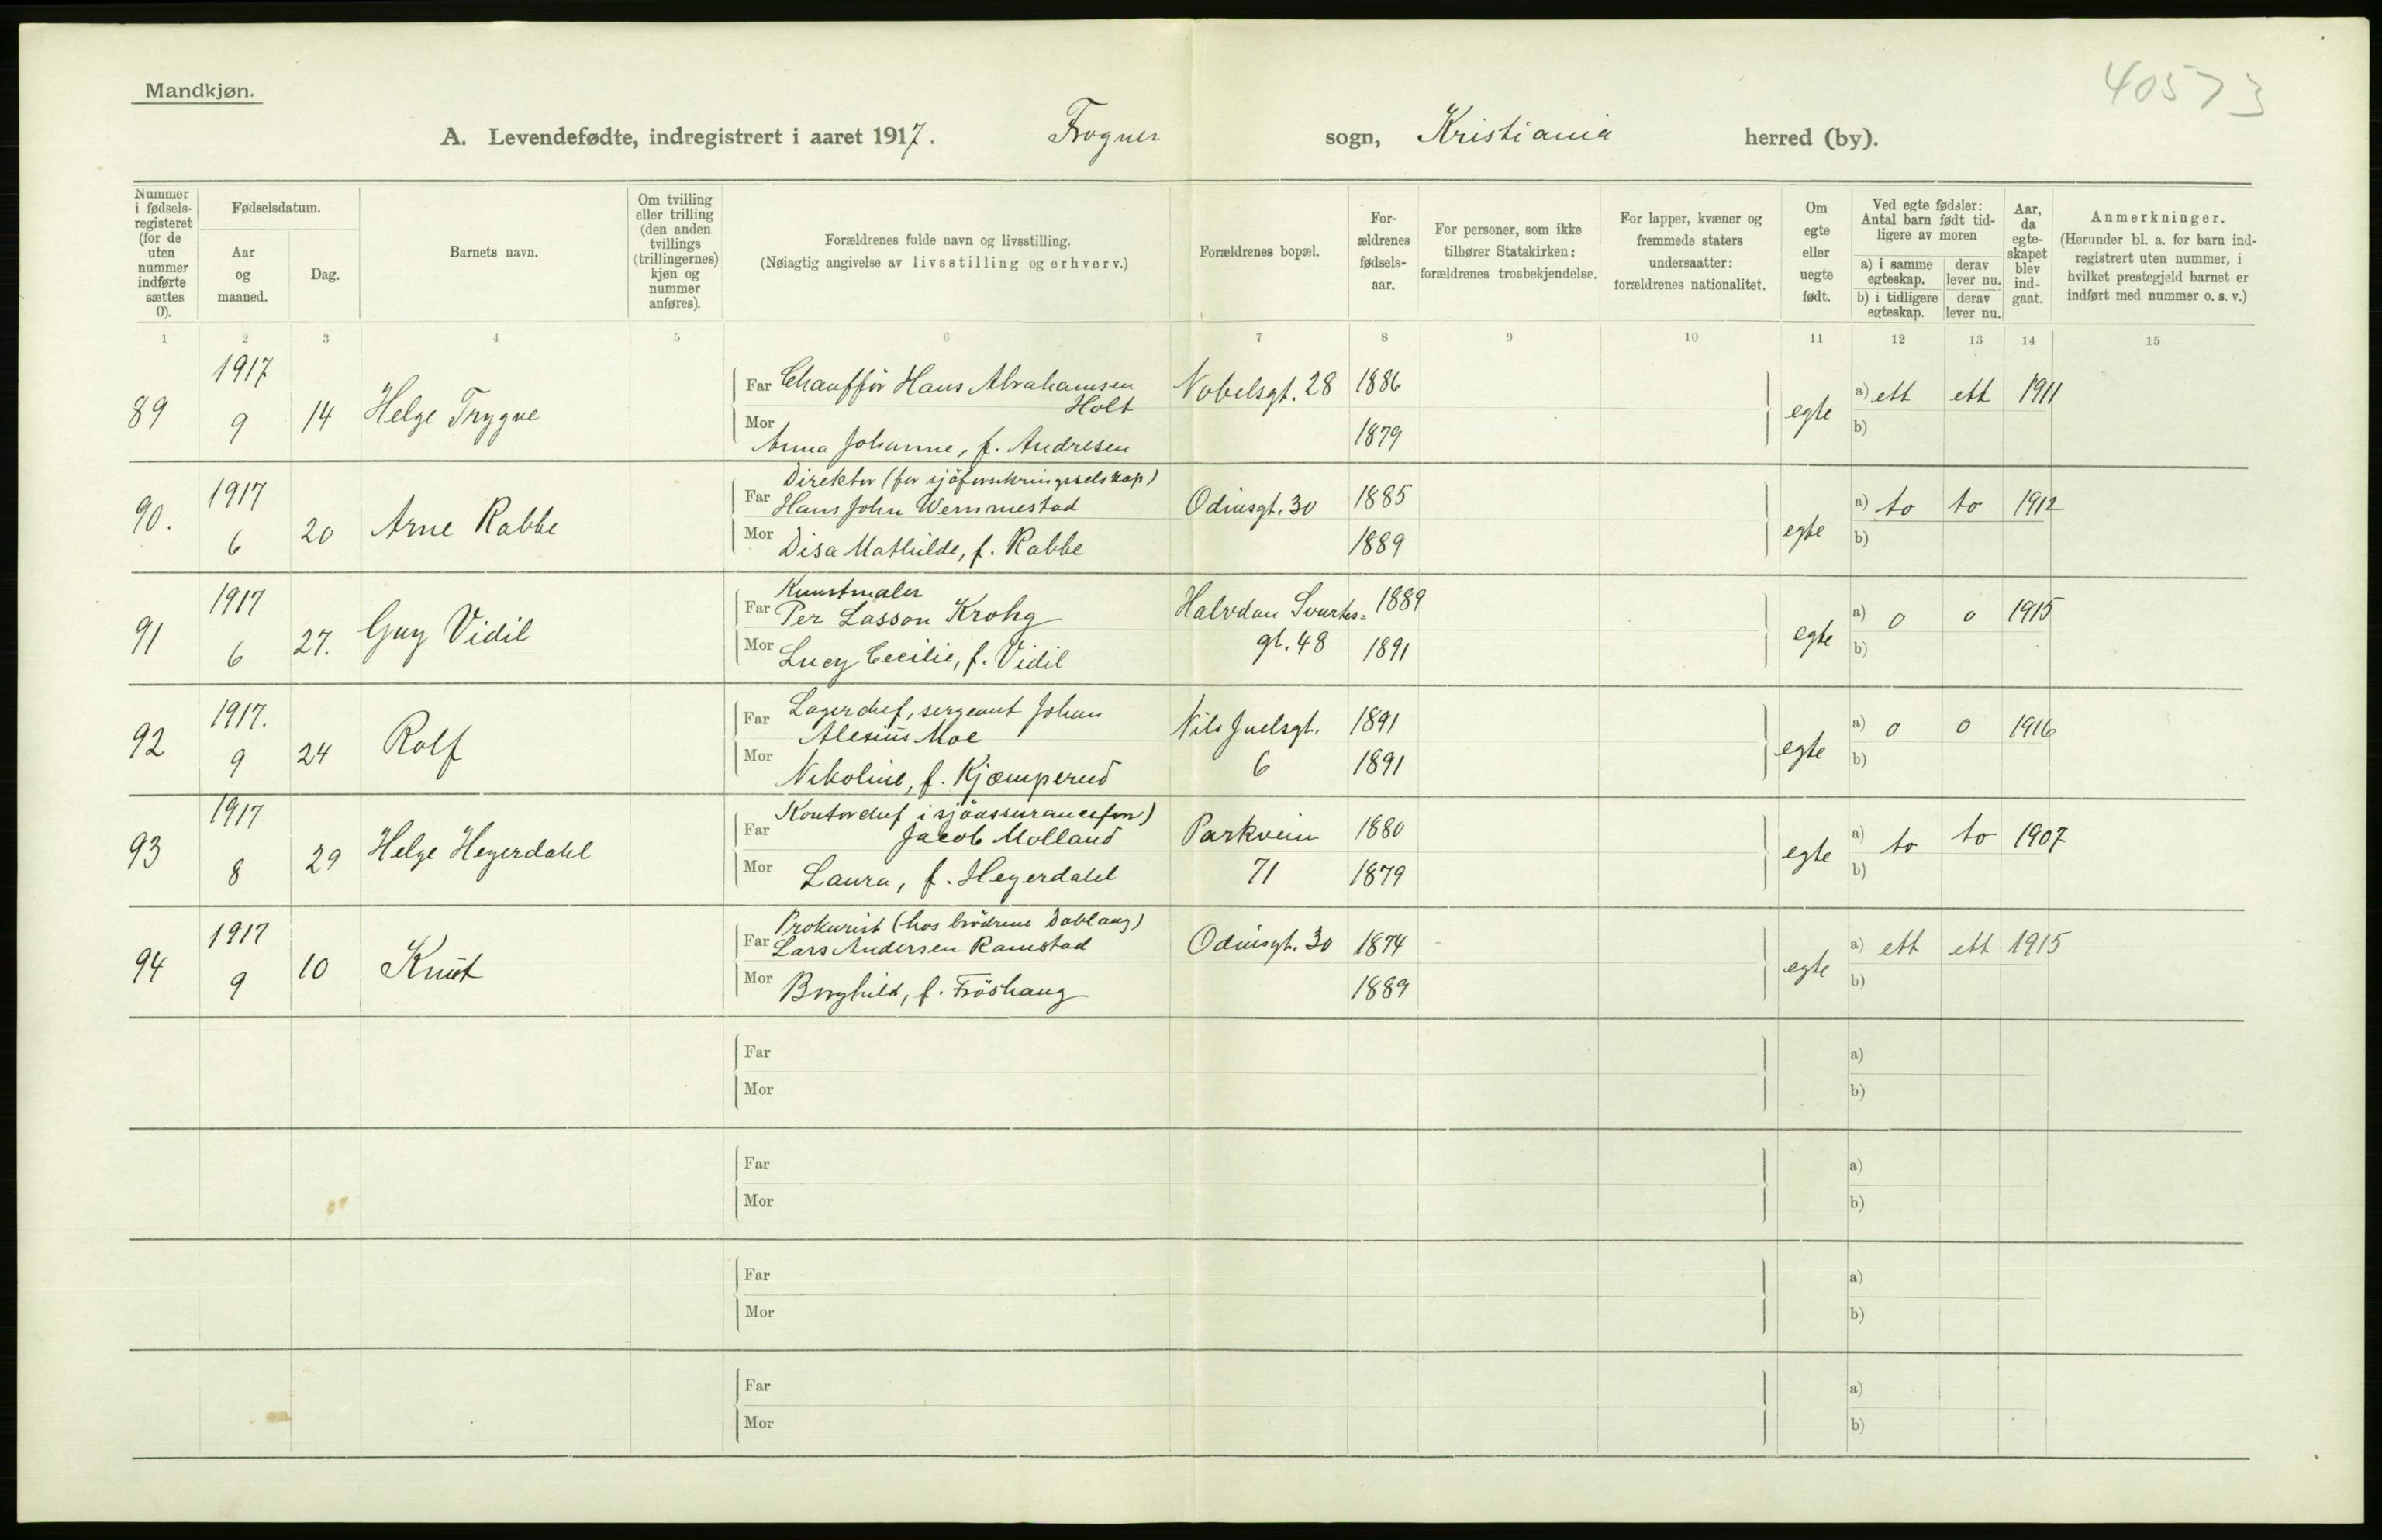 Mandkjøn.
40573
A. Levendefødte, indregistrert i aaret 1917. Frogner sogn, Kristiania herred (by).
Nummer i fødsels-registeret (for de uten nummer indførte sættes 0).
Fødselsdatum.
Aar og maaned.
Dag.
Barnets navn.
Om tvilling eller trilling (den anden tvillings (trillingernes) kjøn og nummer anføres).
Forældrenes fulde navn og livsstilling.
(Nøiagtig angivelse av livsstilling og erhverv.)
Forældrenes bopæl.
For-ældrenes fødsels-aar.
For personer, som ikke tilhører Statskirken: forældrenes trosbekjendelse.
For lapper, kvæner og fremmede staters undersaatter: forældrenes nationalitet.
Om egte eller uegte født.
Ved egte fødsler: Antal barn født tid-ligere av moren
a) i samme egteskap.
derav lever nu.
b) i tidligere egteskap.
derav lever nu.
Aar, da egte-skapet blev ind-gaat.
Anmerkninger.
(Herunder bl. a. for barn ind-registrert uten nummer, i hvilket prestegjeld barnet er indført med nummer o. s. v.)
1 2 3 4 5 6 7 8 9 10 11 12 13 14 15
89 1917 9 14 Helge Trygve
Far Chauffør Hans Abrahamsen Holt Nobelsgt. 28 1886 egte a) ett ett 1911
Mor Anna Johanne, f. Andresen 1879 b)
90. 1917 6 20 Arne Rabbe
Direktør (for sjöforsikringsselskap)
Far Hans John Wemmestad Odinsgt. 30 1885 egte a) to to 1912
Mor Disa Mathilde, f. Rabbe 1889 b)
91 1917 6 27. Guy Vidil
Kunstmaler
Far Per Lasson Krohg Halvdan Svartes= 1889 egte a) 0 0 1915
Mor Lucy Cecilie, f. Vidil gt. 48 1891 b)
92 1917. 9 24 Rolf
Far Lagerchef, sergeant Johan Alesius Moe Nils Juelsgt. 1891 egte a) 0 0 1916
Mor Nikoline, f. Kjæmperud 6 1891 b)
93 1917 8 29 Helge Heyerdahl
Kontorchef i sjöassurancefor)
Far Jacob Molland Parkvein 1880 egte a) to to 1907
Mor Laura, f. Heyerdahl 71 1879 b)
94 1917 9 10 Knut
Prokurist (hos brödrene Dobloug)
Far Lars Andersen Ramstad Odinsgt. 30 1874 egte a) ett ett 1915
Mor Borghild, f. Fröshaug 1889 b)
Far a)
Mor b)
Far a)
Mor b)
Far a)
Mor b)
Far a)
Mor b)